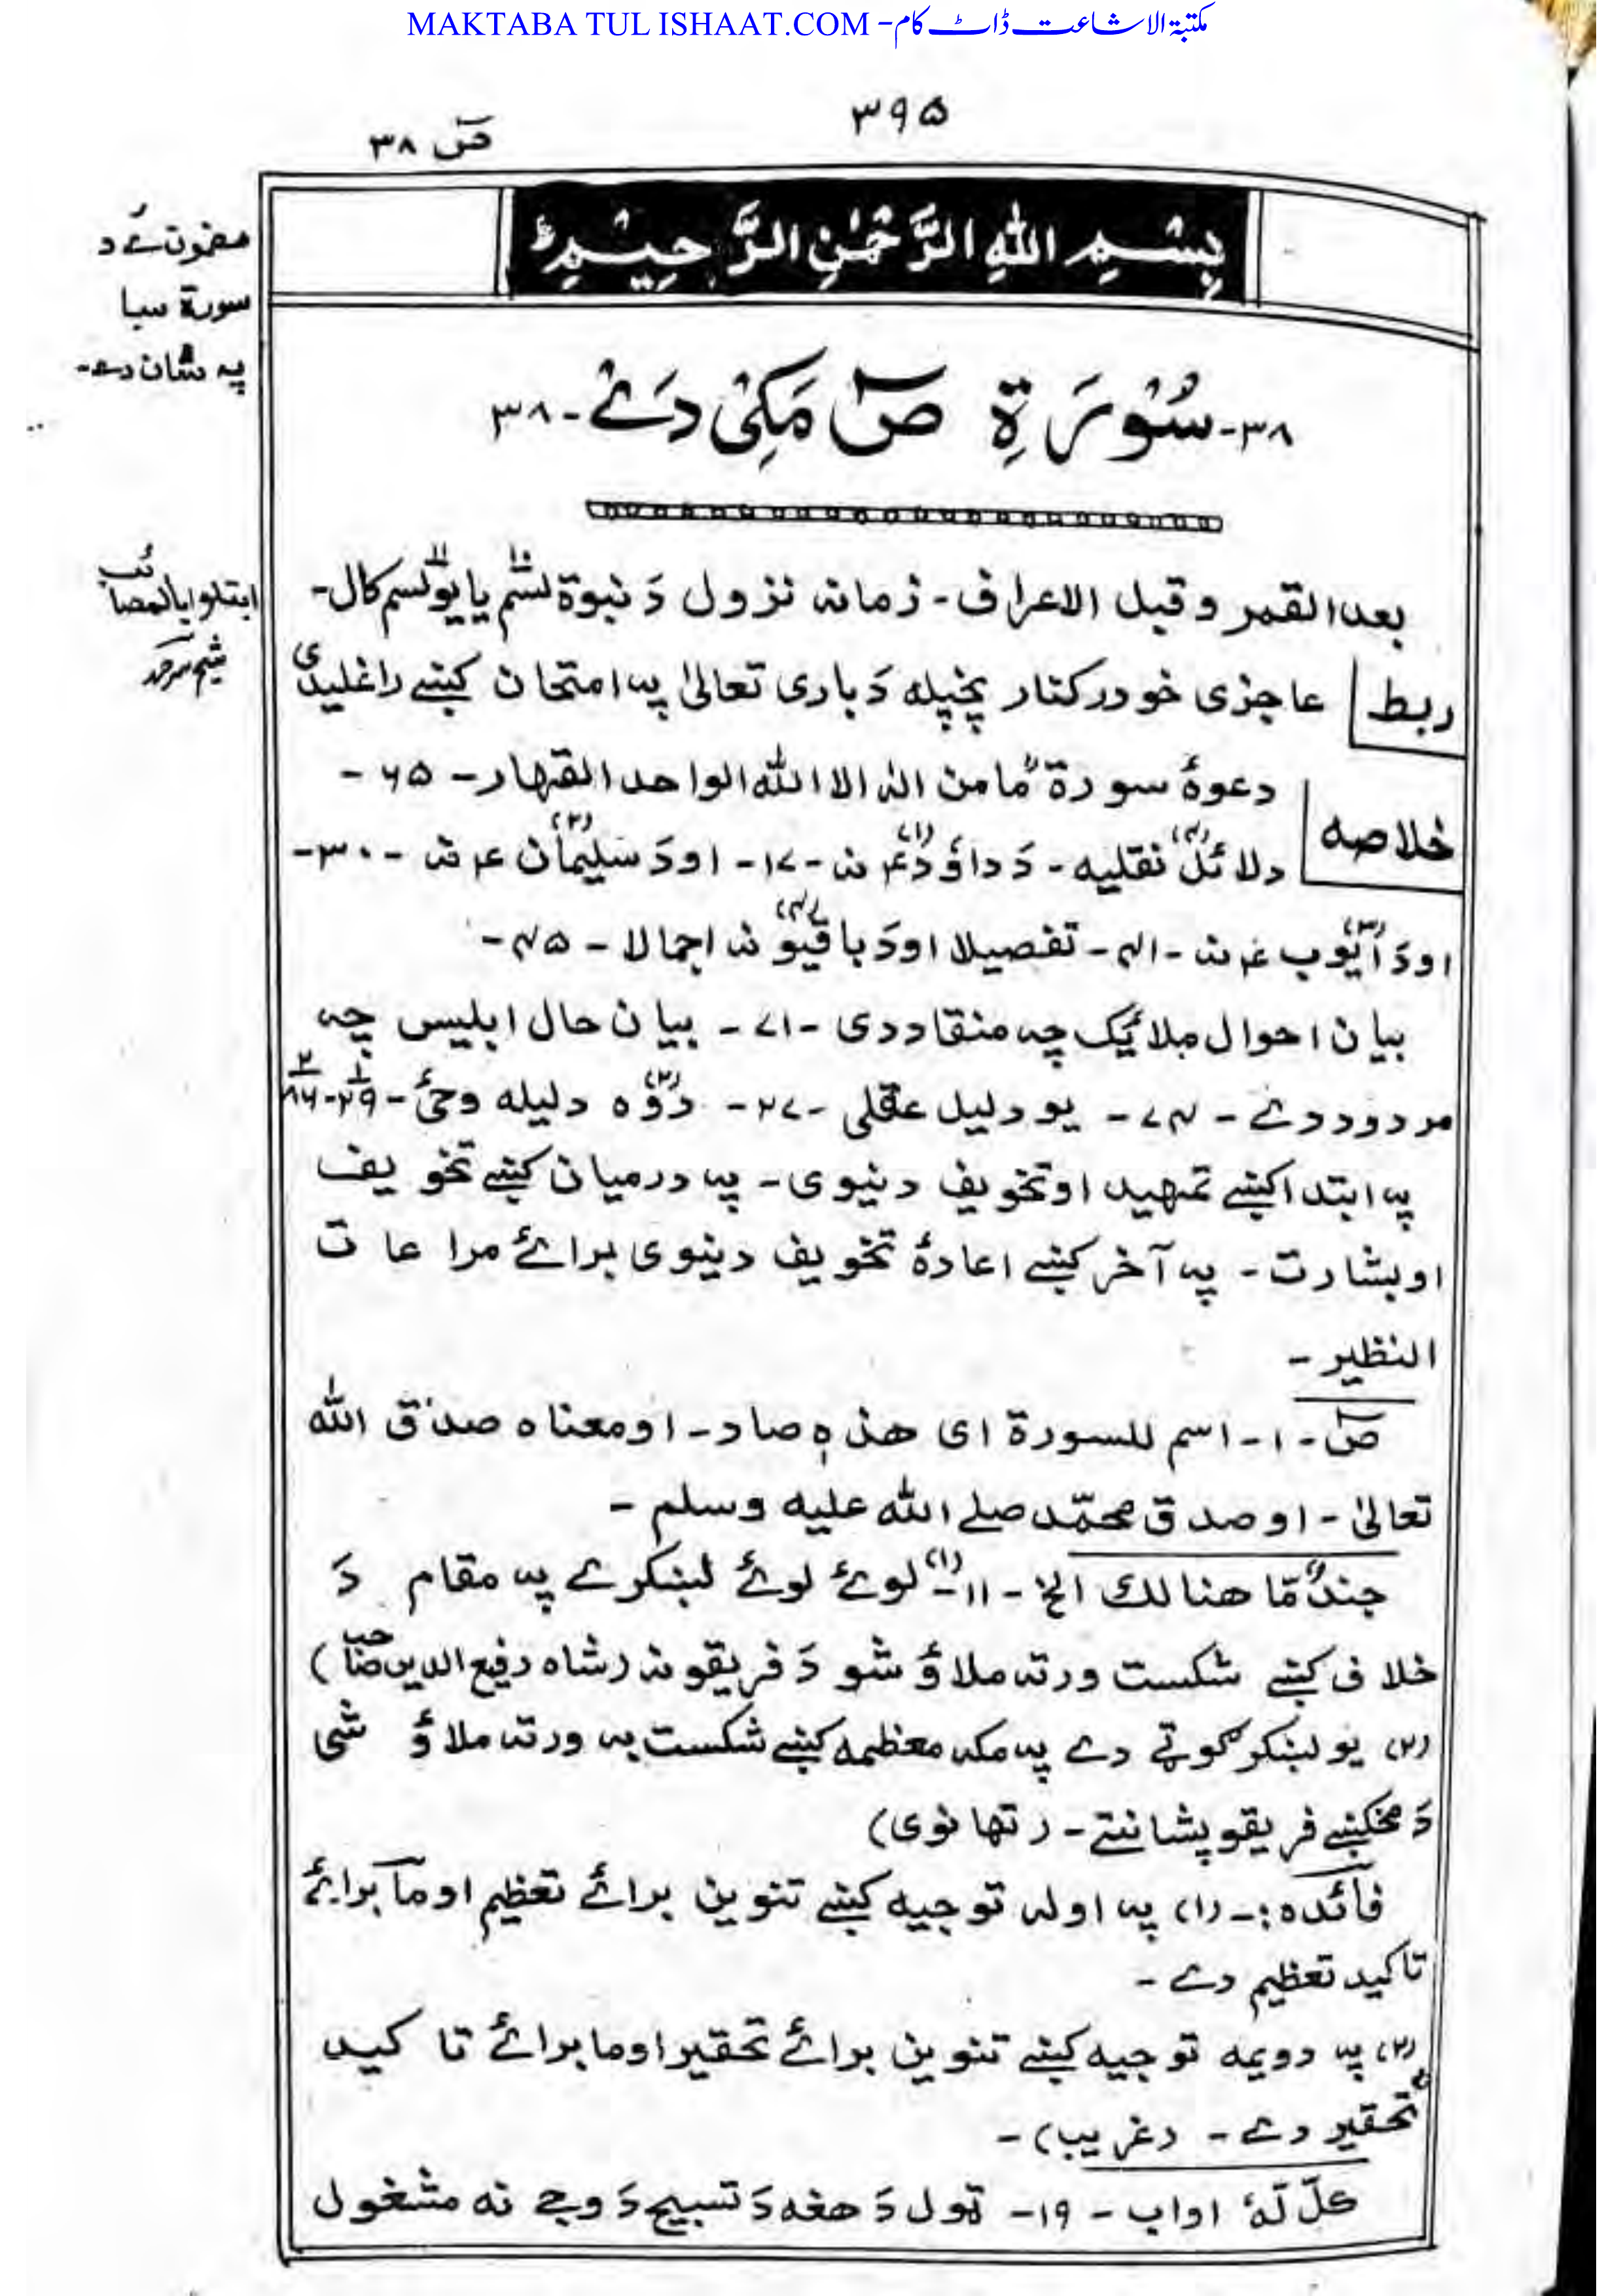 MAKTABA TUL ISHAAT.COM - مکتبۃ الاشاعت ڈاٹ کام
۳۹۵
صٓ ۳۸
بِسْمِ اللهِ الرَّحْمٰنِ الرَّحِيْمِ
مضمون ئے د
سورة سبا
په شان دے-
۳۸- سُوْرَةِ صٓ مَکِّی دَےْ -۳۸
ابتلوا بالمصائب
بعد القمر وقبل الاعراف - زمانه نزول دَ نبوة لسَّم یا یوَّلسم کال-
ربط
عاجزی خو درکنار پخپله دَ باری تعالیٰ په امتحان کښے راغلیدی
خلاصه
دعوهٔ سورة مّا من الٰه الا الله الواحد القهار - ۶۵ -
دلائل (۴) نقلیه - دَ داؤد (۱) ع نه - ۱۷ - اودَ سلیمان (۲) ع نه - ۳۰ -
اودَ ایّوب (۳) ع نه - ۴۱ - تفصیلا اودَ باقیو (۴) نه اجمالا - ۴۵ -
بیان احوال ملائیک چه منقاد دی - ۷۱ - بیان حال ابلیس چه
مردود دے - ۷۴ - یو دلیل عقلی - ۲۷ - دوّه (۲) دلیله وحیٔ - ۲۹ - ۸۶
په ابتدا کښے تمهید او تخویف دنیوی - په درمیان کښے تخویف
او بشارت - په آخر کښے اعادهٔ تخویف دینوی برائے مراعات
النظیر -
صٓ - ۱ - اسم للسورة ای هذه صاد - او معناه صدق الله
تعالیٰ - او صدق محمّد صلے الله علیه وسلم -
جندٌ مّا هنالك الخ - ۱۱ - (۱) لوئے لوئے لښکرے په مقام دَ
خلاف کښے شکست ورته ملاؤ شو دَ فریقونه (شاه رفیع الدین صاحب)
(۲) یو لښکر گوټے دے په مکه معظمه کښے شکست به ورته ملاؤ شی
دَ مخکښے فریقو پشانتے - (تهانوی)
فائده :- (۱) په اوله توجیه کښے تنوین برائے تعظیم او ما برائے
تاکید تعظیم دے -
(۲) په دویمه توجیه کښے تنوین برائے تحقیر او ما برائے تاکید
تحقیر دے - (غریب) -
کلّ لّهٗ اواب - ۱۹ - ټول دَ هغه دَ تسبیح دَ وجے نه مشغول